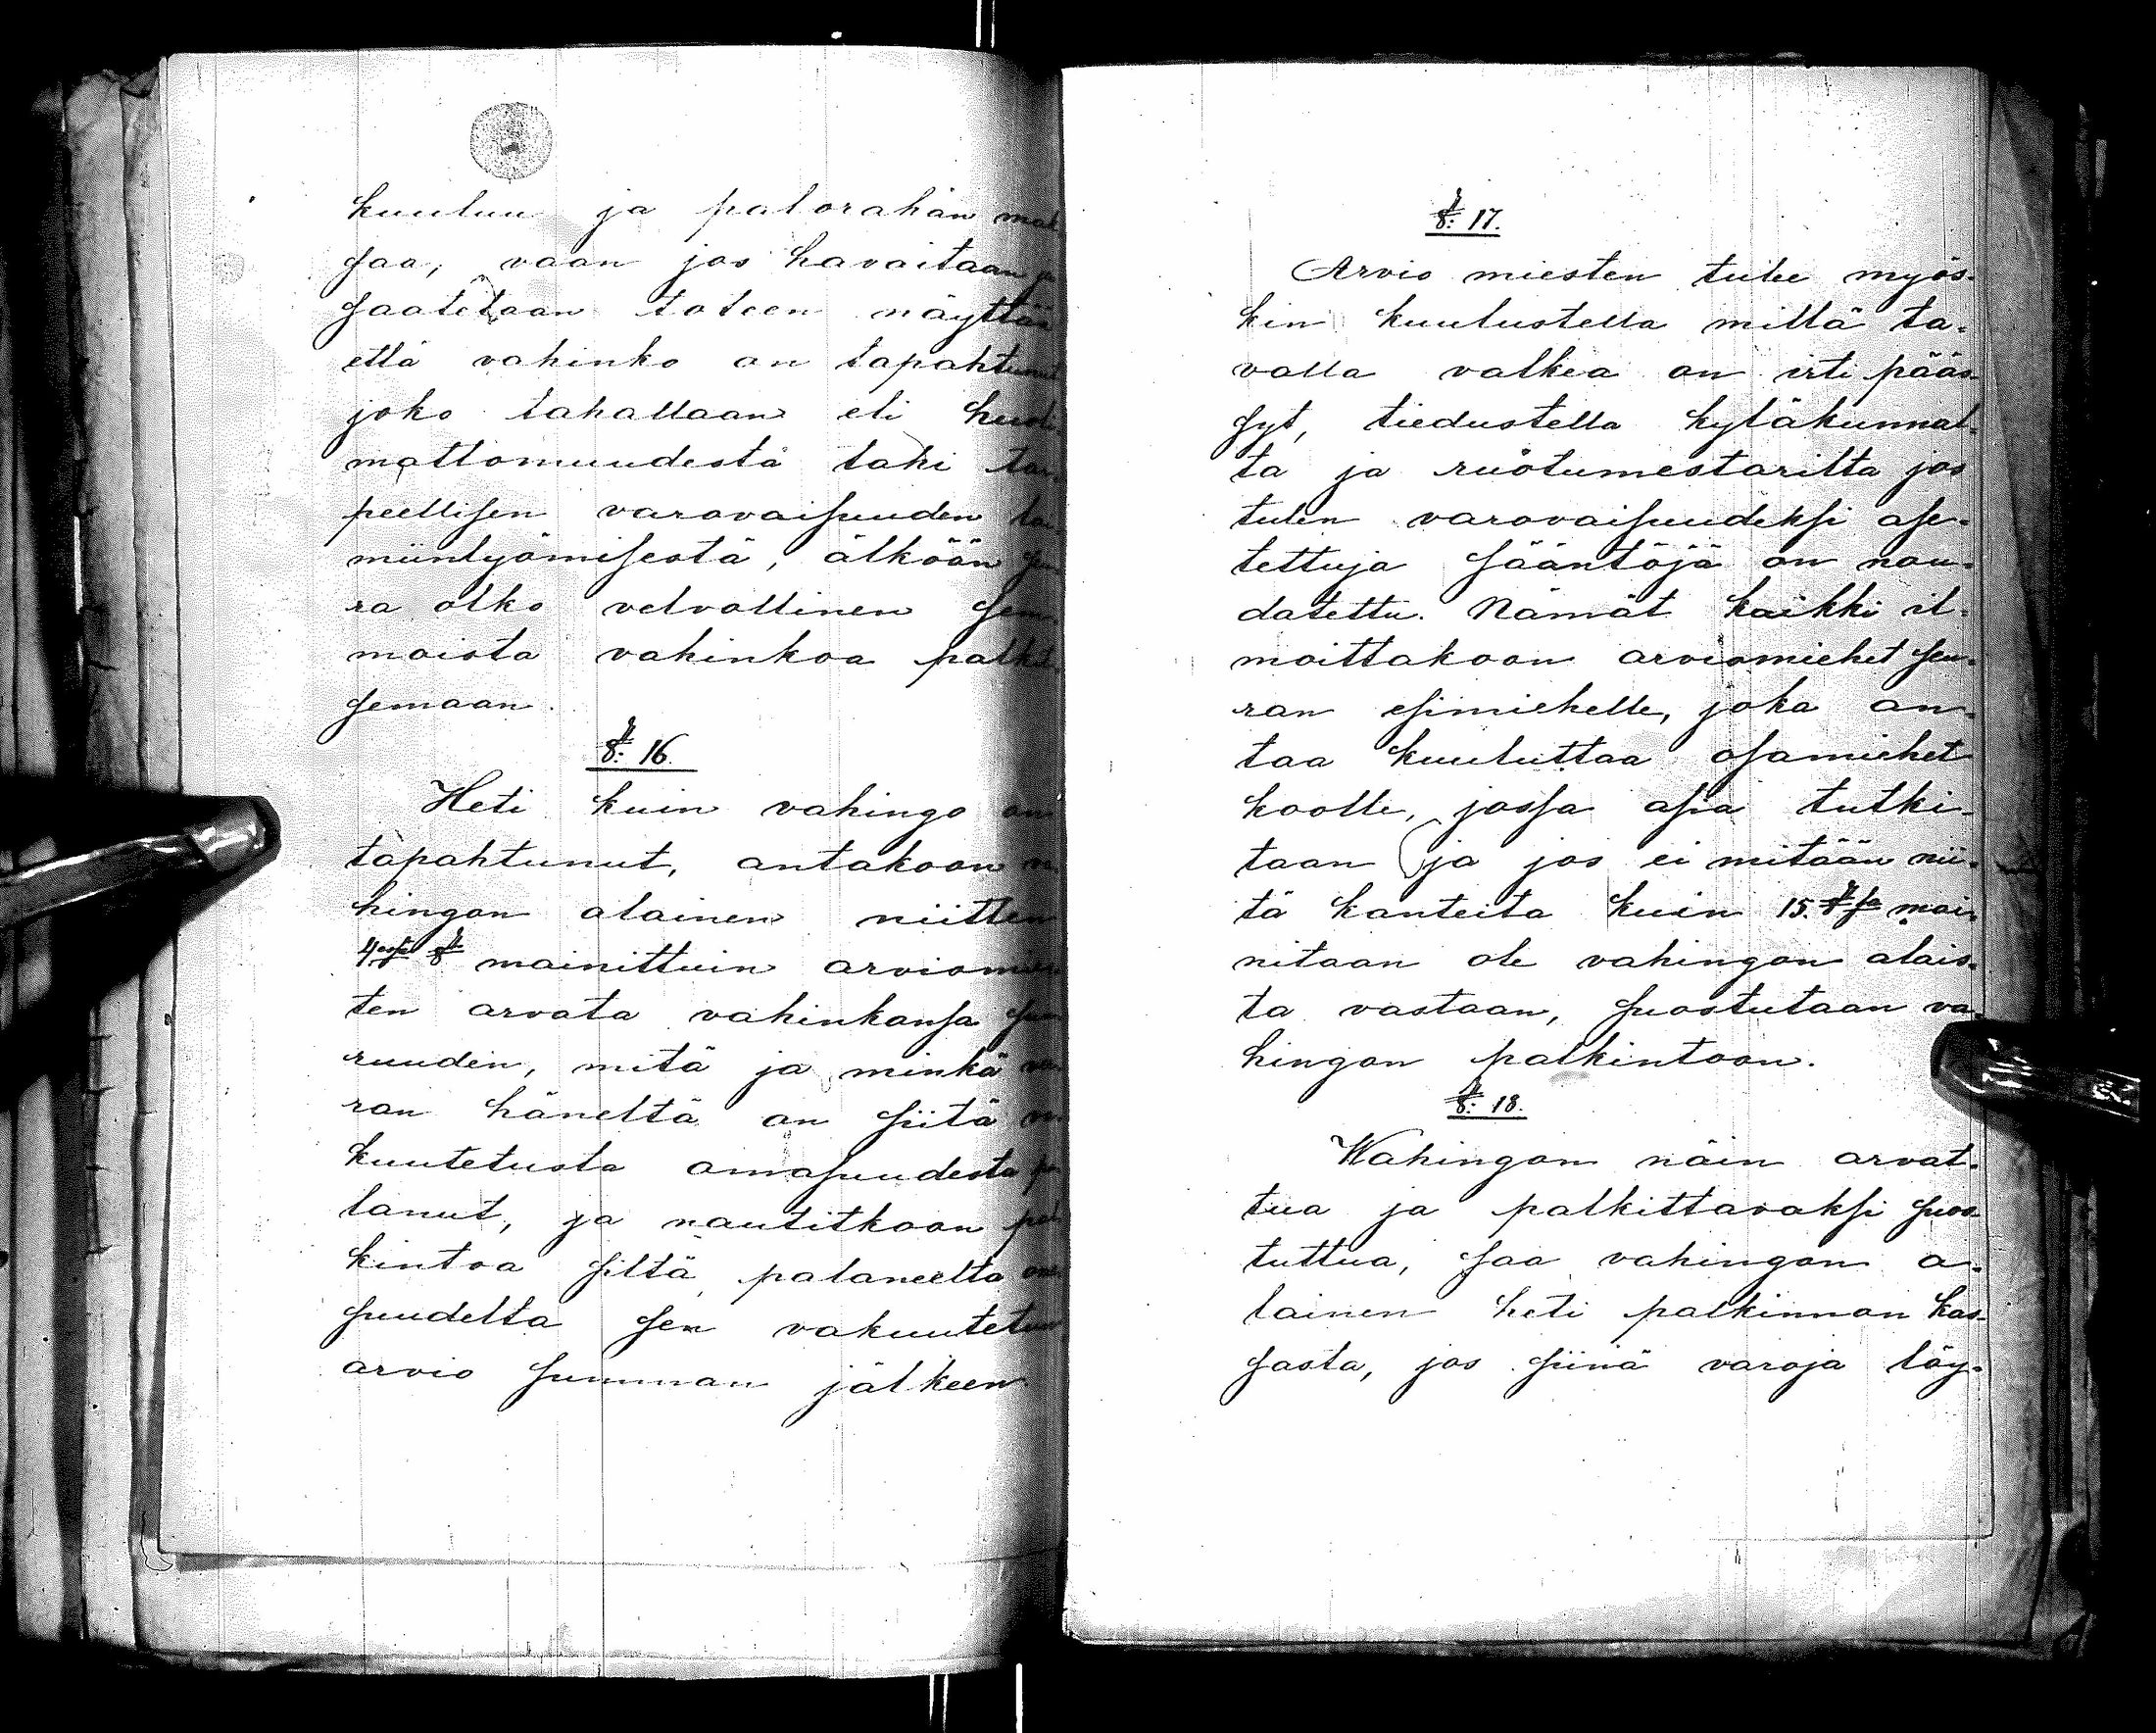 kuuluu ja palorahan mak
saa; vaan jos havaitaan ja
saatetaan toteen näyttää
että vahinko on tapahtunut
joko tahallaan eli huoli-
mattomuudesta tahi tar-
peellisen varovaisuuden lai-
miinlyömisestä, älköön seu
ra olko velvollinen sem-
moista vahinkoa palkit-
semaan.
§: 16.
Heti kuin vahingo on
tapahtunut, antakoon va
hingon alainen niitten
4:ssä § mainittuin arviomies
ten arvata vahinkonsa suu
ruuden, mitä ja minkä va
ran häneltä on siitä va
kuutetusta omasuudesta pa
lanut, ja nautitkoon pal
kintoa siltä palaneelta oma
suudelta sen vakuutetun
arvio summan jälkeen
§: 17.
Arvio miesten tulee myös-
kin kuulustella millä ta-
valla valkea on irti pääs-
syt, tiedustella kyläkunnal-
ta ja ruotumestarilta jos
tulen varovaisuudeksi ase-
tettuja sääntöjä on nou-
datettu. Nämät kaikki il-
moittakoon arviomiehet seu-
ran esimiehelle, joka an-
taa kuuluttaa osamiehet
koolle, jossa asia tutki-
taan ja jos ei mitään nii-
tä kanteita kuin 15. §ssa mai-
nitaan ole vahingon alais-
ta vastaan, suostutaan va-
hingon palkintoon.
§: 18.
Wahingon näin arvat-
tua ja palkittavaksi suos
tuttua, saa vahingon a-
lainen heti palkinnon kas-
sasta, jos siinä varoja löy-